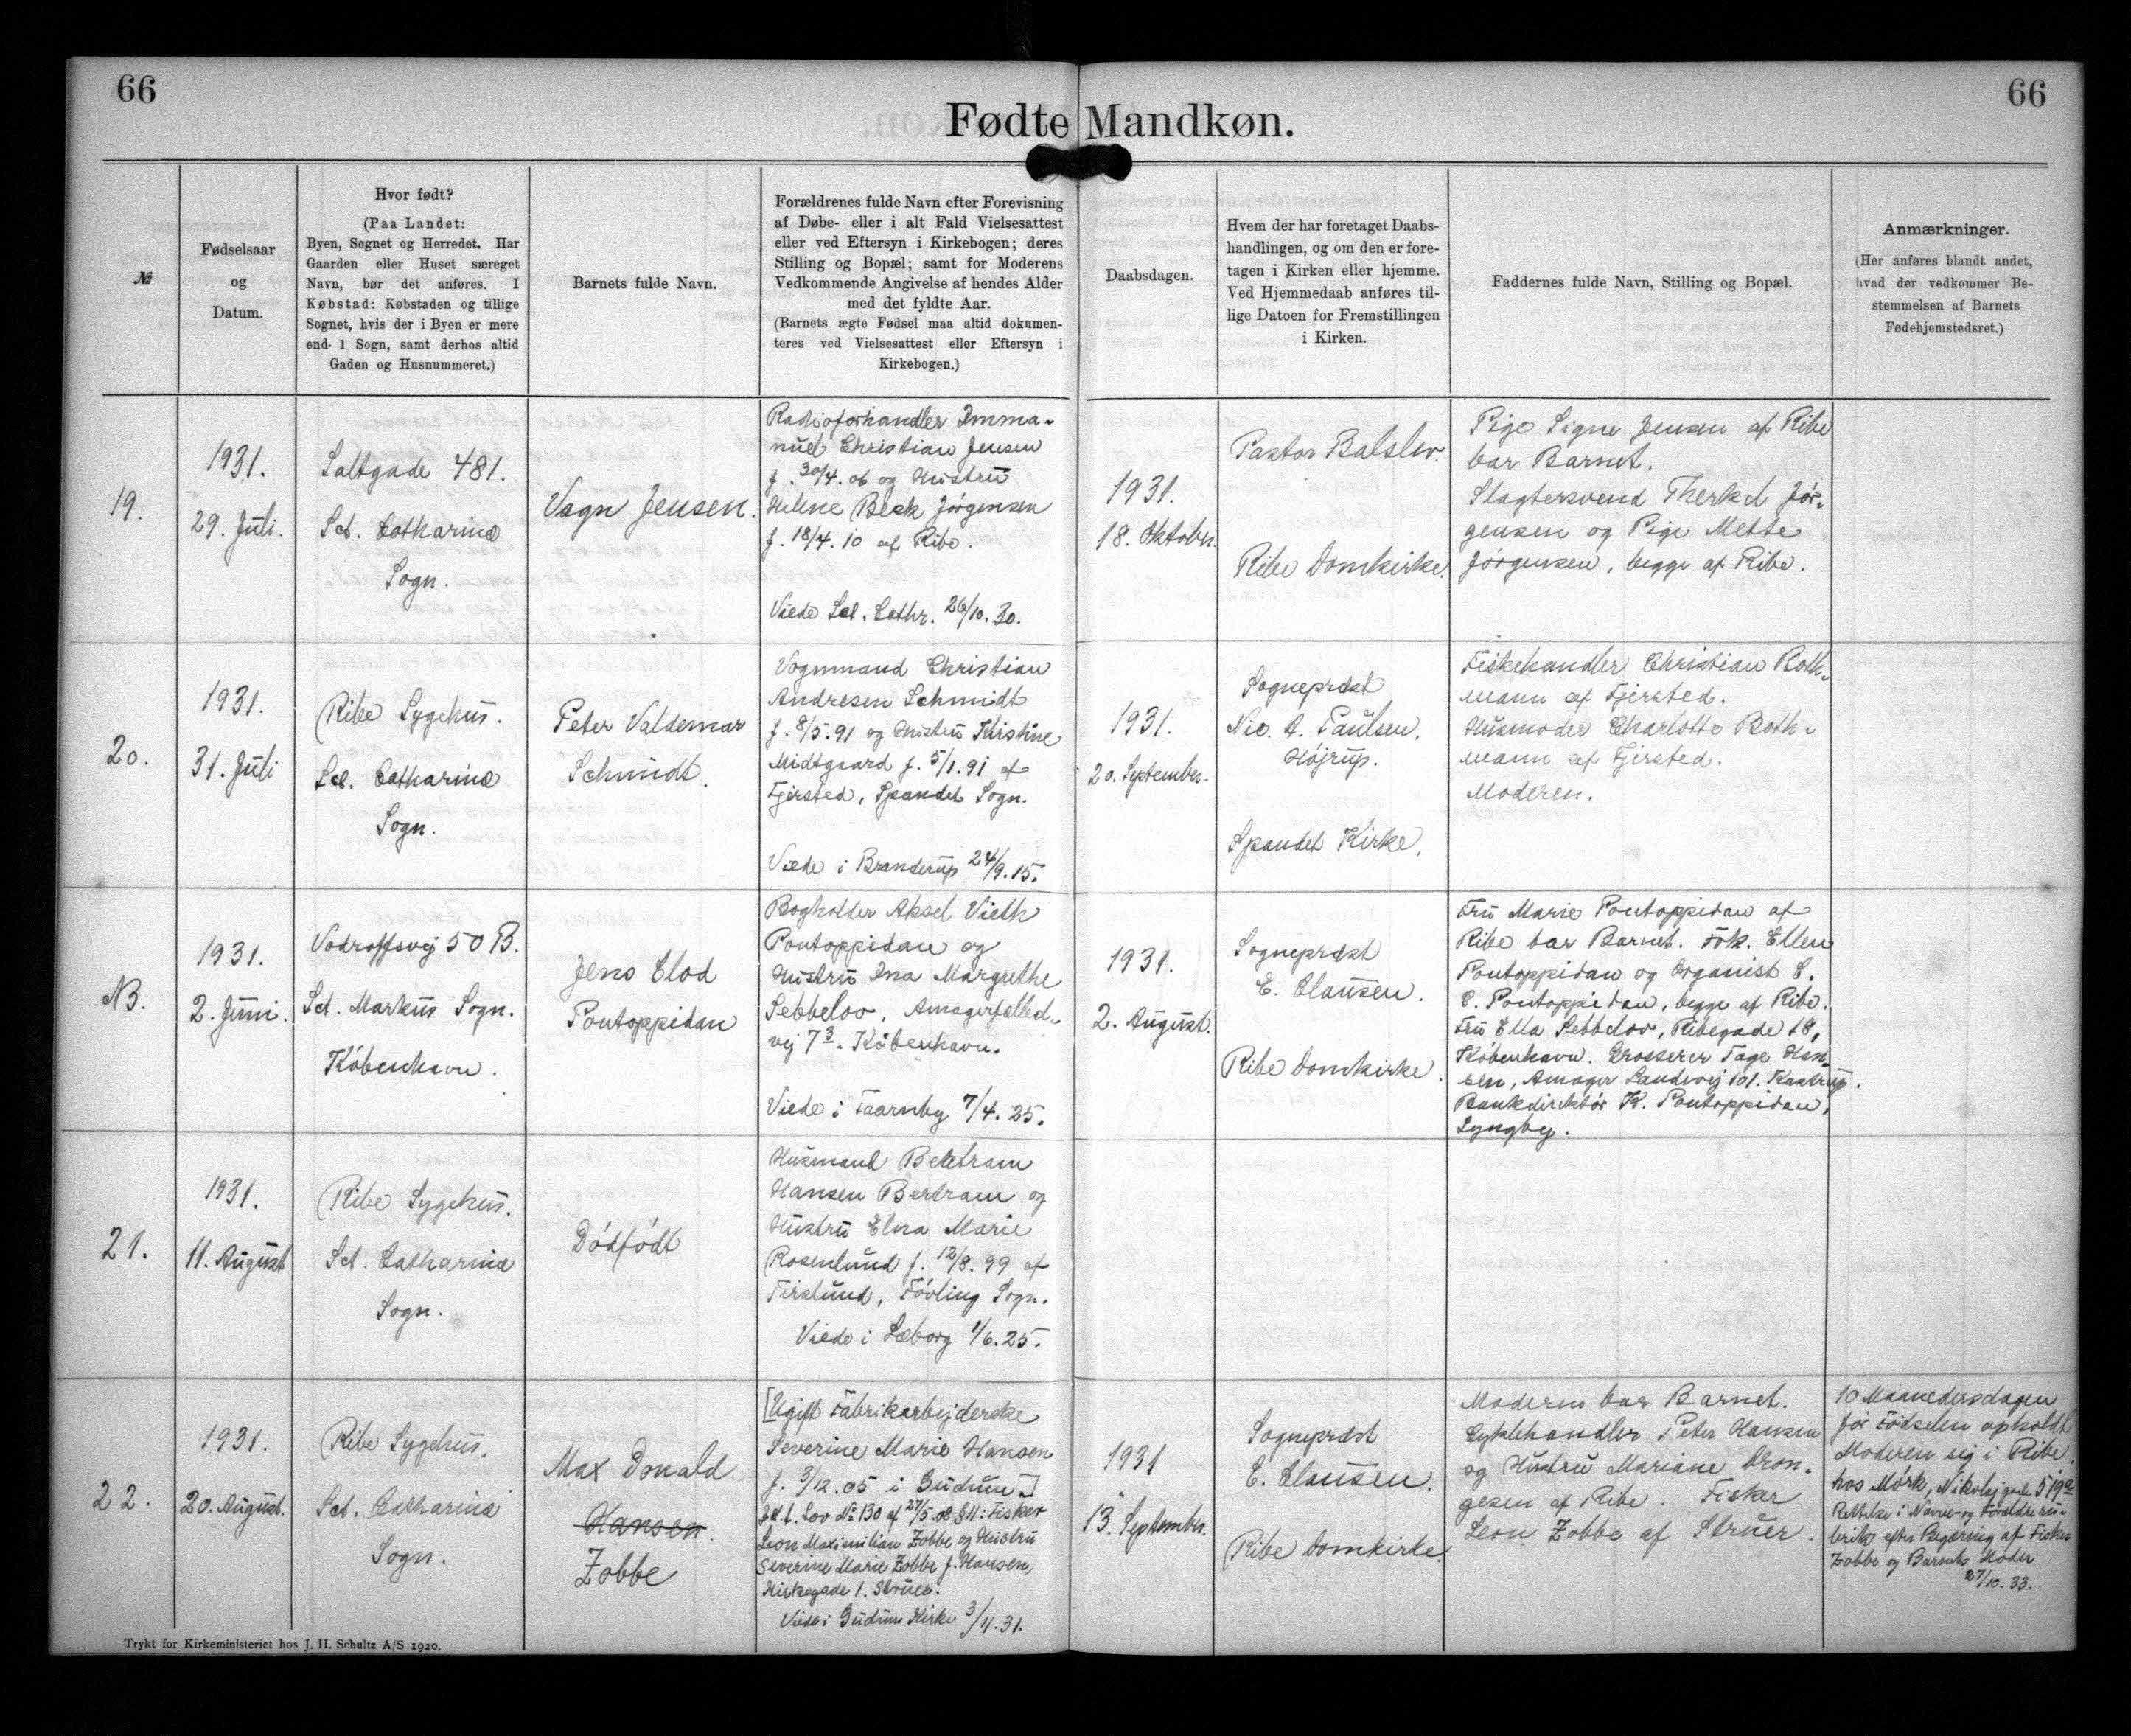 66
66
Fødte Mandkøn.
№
Fødselsaar
og
Datum.
Hvor født?
(Paa Landet:
Byen, Sognet og Herredet. Har
Gaarden eller Huset særeget
Navn, bør det anføres. I
Købstad: Købstaden og tillige
Sognet, hvis der i Byen er mere
end 1 Sogn, samt derhos altid
Gaden og Husnummeret.)
Barnets fulde Navn.
Forældrenes fulde Navn efter Forevisning
af Døbe- eller i alt Fald Vielsesattest
eller ved Eftersyn i Kirkebogen; deres
Stilling og Bopæl; samt for Moderens
Vedkommende Angivelse af hendes Alder
med det fyldte Aar.
(Barnets ægte Fødsel maa altid dokumen-
teres ved Vielsesattest eller Eftersyn i
Kirkebogen.)
Daabsdagen.
Hvem der har foretaget Daabs-
handlingen, og om den er fore-
tagen i Kirken eller hjemme.
Ved Hjemmedaab anføres til-
lige Datoen for Fremstillingen
i Kirken.
Faddernes fulde Navn, Stilling og Bopæl.
Anmærkninger.
(Her anføres blandt andet,
hvad der vedkommer Be-
stemmelsen af Barnets
Fødehjemstedsret.)
19.
1931.
29. Juli.
Saltgade 481.
Sct. Catharinæ
Sogn.
Vagn Jensen.
Radioforhandler Imma-
nuel Christian Jensen
f. 30/4. 06 og Hustru
Helene Beck Jørgensen
f. 18/4. 10 af Ribe.
Viede Sct. Cathr. 26/10. 30.
1931.
18. Oktober.
Pastor Balslev.
Ribe Domkirke.
Pige Signe Jensen af Ribe
bar Barnet.
Slagtersvend Therkel Jør-
gensen og Pige Mette
Jørgensen, begge af Ribe.
20.
1931.
31. Juli
Ribe Sygehus.
Sct. Catharinæ
Sogn.
Peter Valdemar
Schmidt.
Vognmand Christian
Andresen Schmidt
f. 8/5. 91 og Hustru Kirstine
Midtgaard f. 5/1. 91 af
Fjersted, Spandet Sogn.
Viede i Branderup 24/9. 15.
1931.
20. September.
Sognepræst
Nic. A. Paulsen.
Højrup.
Spandet Kirke.
Fiskehandler Christian Roth-
mann af Fjersted.
Husmoder Charlotte Roth-
mann af Fjersted.
Moderen.
NB.
1931.
2. Juni.
Vodroffsvej 50 B.
Sct. Markus Sogn.
København.
Jens Clod
Pontoppidan
Bogholder Aksel Vieth
Pontoppidan og
Hustru Ina Margrethe
Sebbelov, Amagerfælled-
vej 7³. København.
Viede i Taarnby 7/4. 25.
1931.
2. August.
Sognepræst
E. Clausen.
Ribe Domkirke.
Fru Marie Pontoppidan af
Ribe bar Barnet. Frk. Ellen
Pontoppidan og Organist C.
C. Pontoppidan, begge af Ribe.
Fru Ella Sebbelov, Ribegade 18,
København. Grosserer Tage Han-
sen, Amager Landevej 101. Kastrup.
Bankdirektør K. Pontoppidan,
Lyngby.
21.
1931.
11. August
Ribe Sygehus.
Sct. Catharinæ
Sogn.
Dødfødt
Husmand Bertram
Hansen Bertram og
Hustru Elna Marie
Rosenlund f. 12/8. 99 af
Tirslund, Føvling Sogn.
Viede i Læborg 1/6. 25.
22.
1931.
20. August.
Ribe Sygehus.
Sct. Catharinæ
Sogn.
Max Donald
Hansen.
Zobbe
[Ugift Fabrikarbejderske
Severine Marie Hansen
f. 3/12. 05 i Gudum]
Lov № 130 af 27/5. 08 § 11: Fisker
Leon Maximilian Zobbe og Hustru
Severine Marie Zobbe f. Hansen,
Kirkegade 1. Struer.
Viede i Gudum Kirke 3/11. 31.
1931
13. September.
Sognepræst
E. Clausen.
Ribe Domkirke.
Moderen bar Barnet.
Cyklehandler Peter Hansen
og Hustru Mariane
gesen af Ribe. Fisker
Leon Zobbe af Struer.
10 Maanedersdagen
før Fødselen opholdt
Moderen sig i Ribe
hos Mørk, Nikolajgade
Rettelse i Navne- og Forældreru-
brik efter Begæring af Fisker
Zobbe og Barnets Moder
27/10. 33.
Trykt for Kirkeministeriet hos J. H. Schultz A/S 1920.